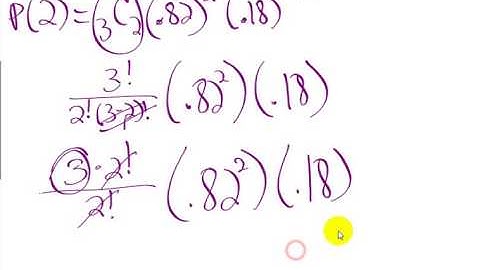 P(2)=(₃C₂)(.82)²(.18)
3!/2!(3-2)! (.82²)(.18)
3·2!/2! (.82²)(.18)